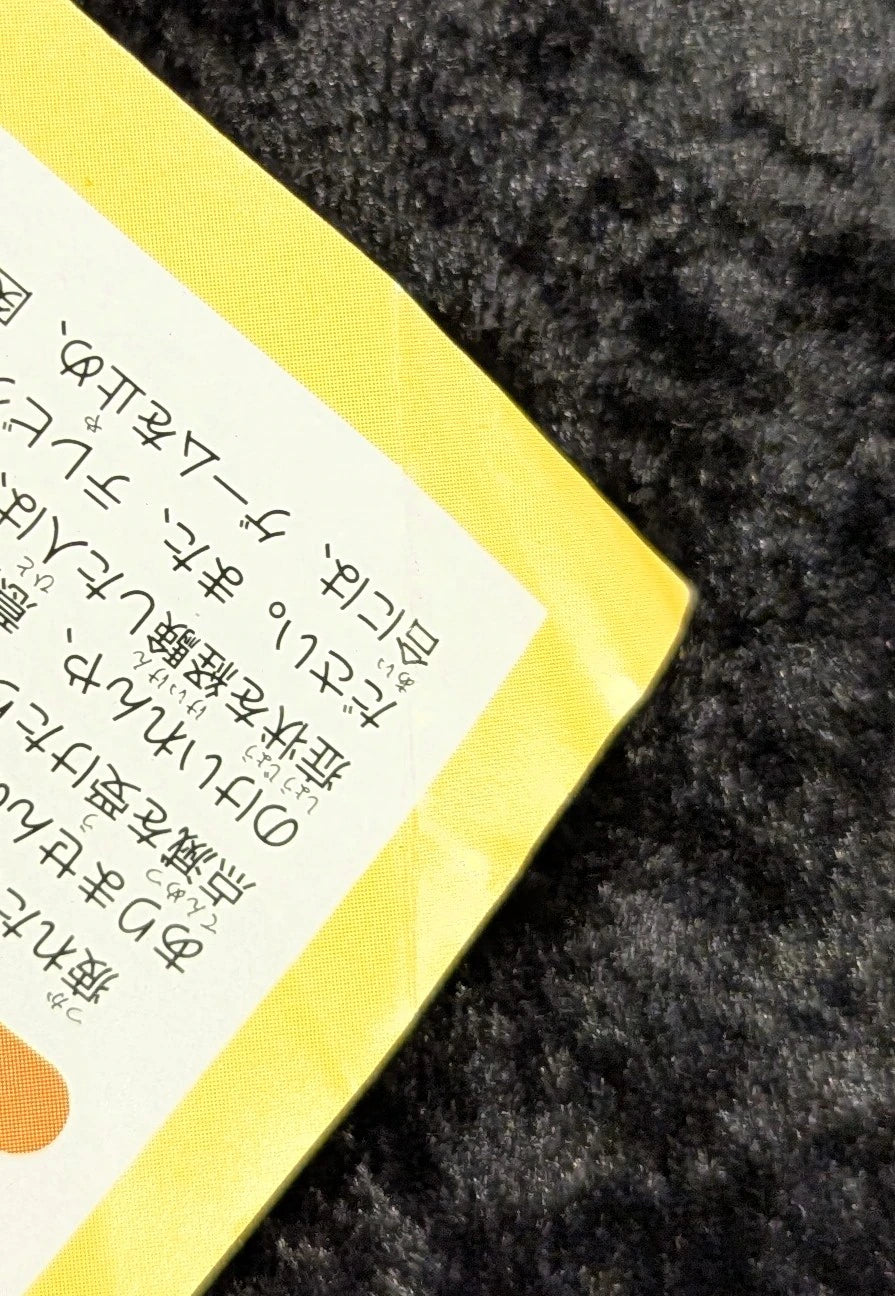 疲れた
ありません
点滅を受けたり
のけいれんや、意
症状を経験した人は、
ださい。また、テレビ
合には、ゲームを止め、